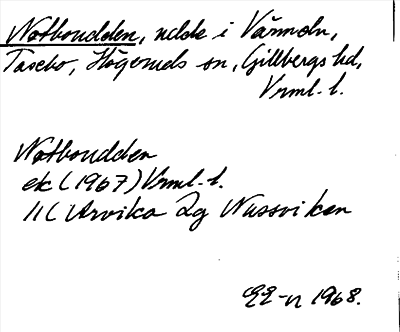 Notboudden, udde i Värmeln,
Tasebo, Högeruds sn, Gillbergs hd,
Vrml. l.
Notboudden
ek (1967) Vrml. l.
11C Arvika 2g Nussviken
1968.